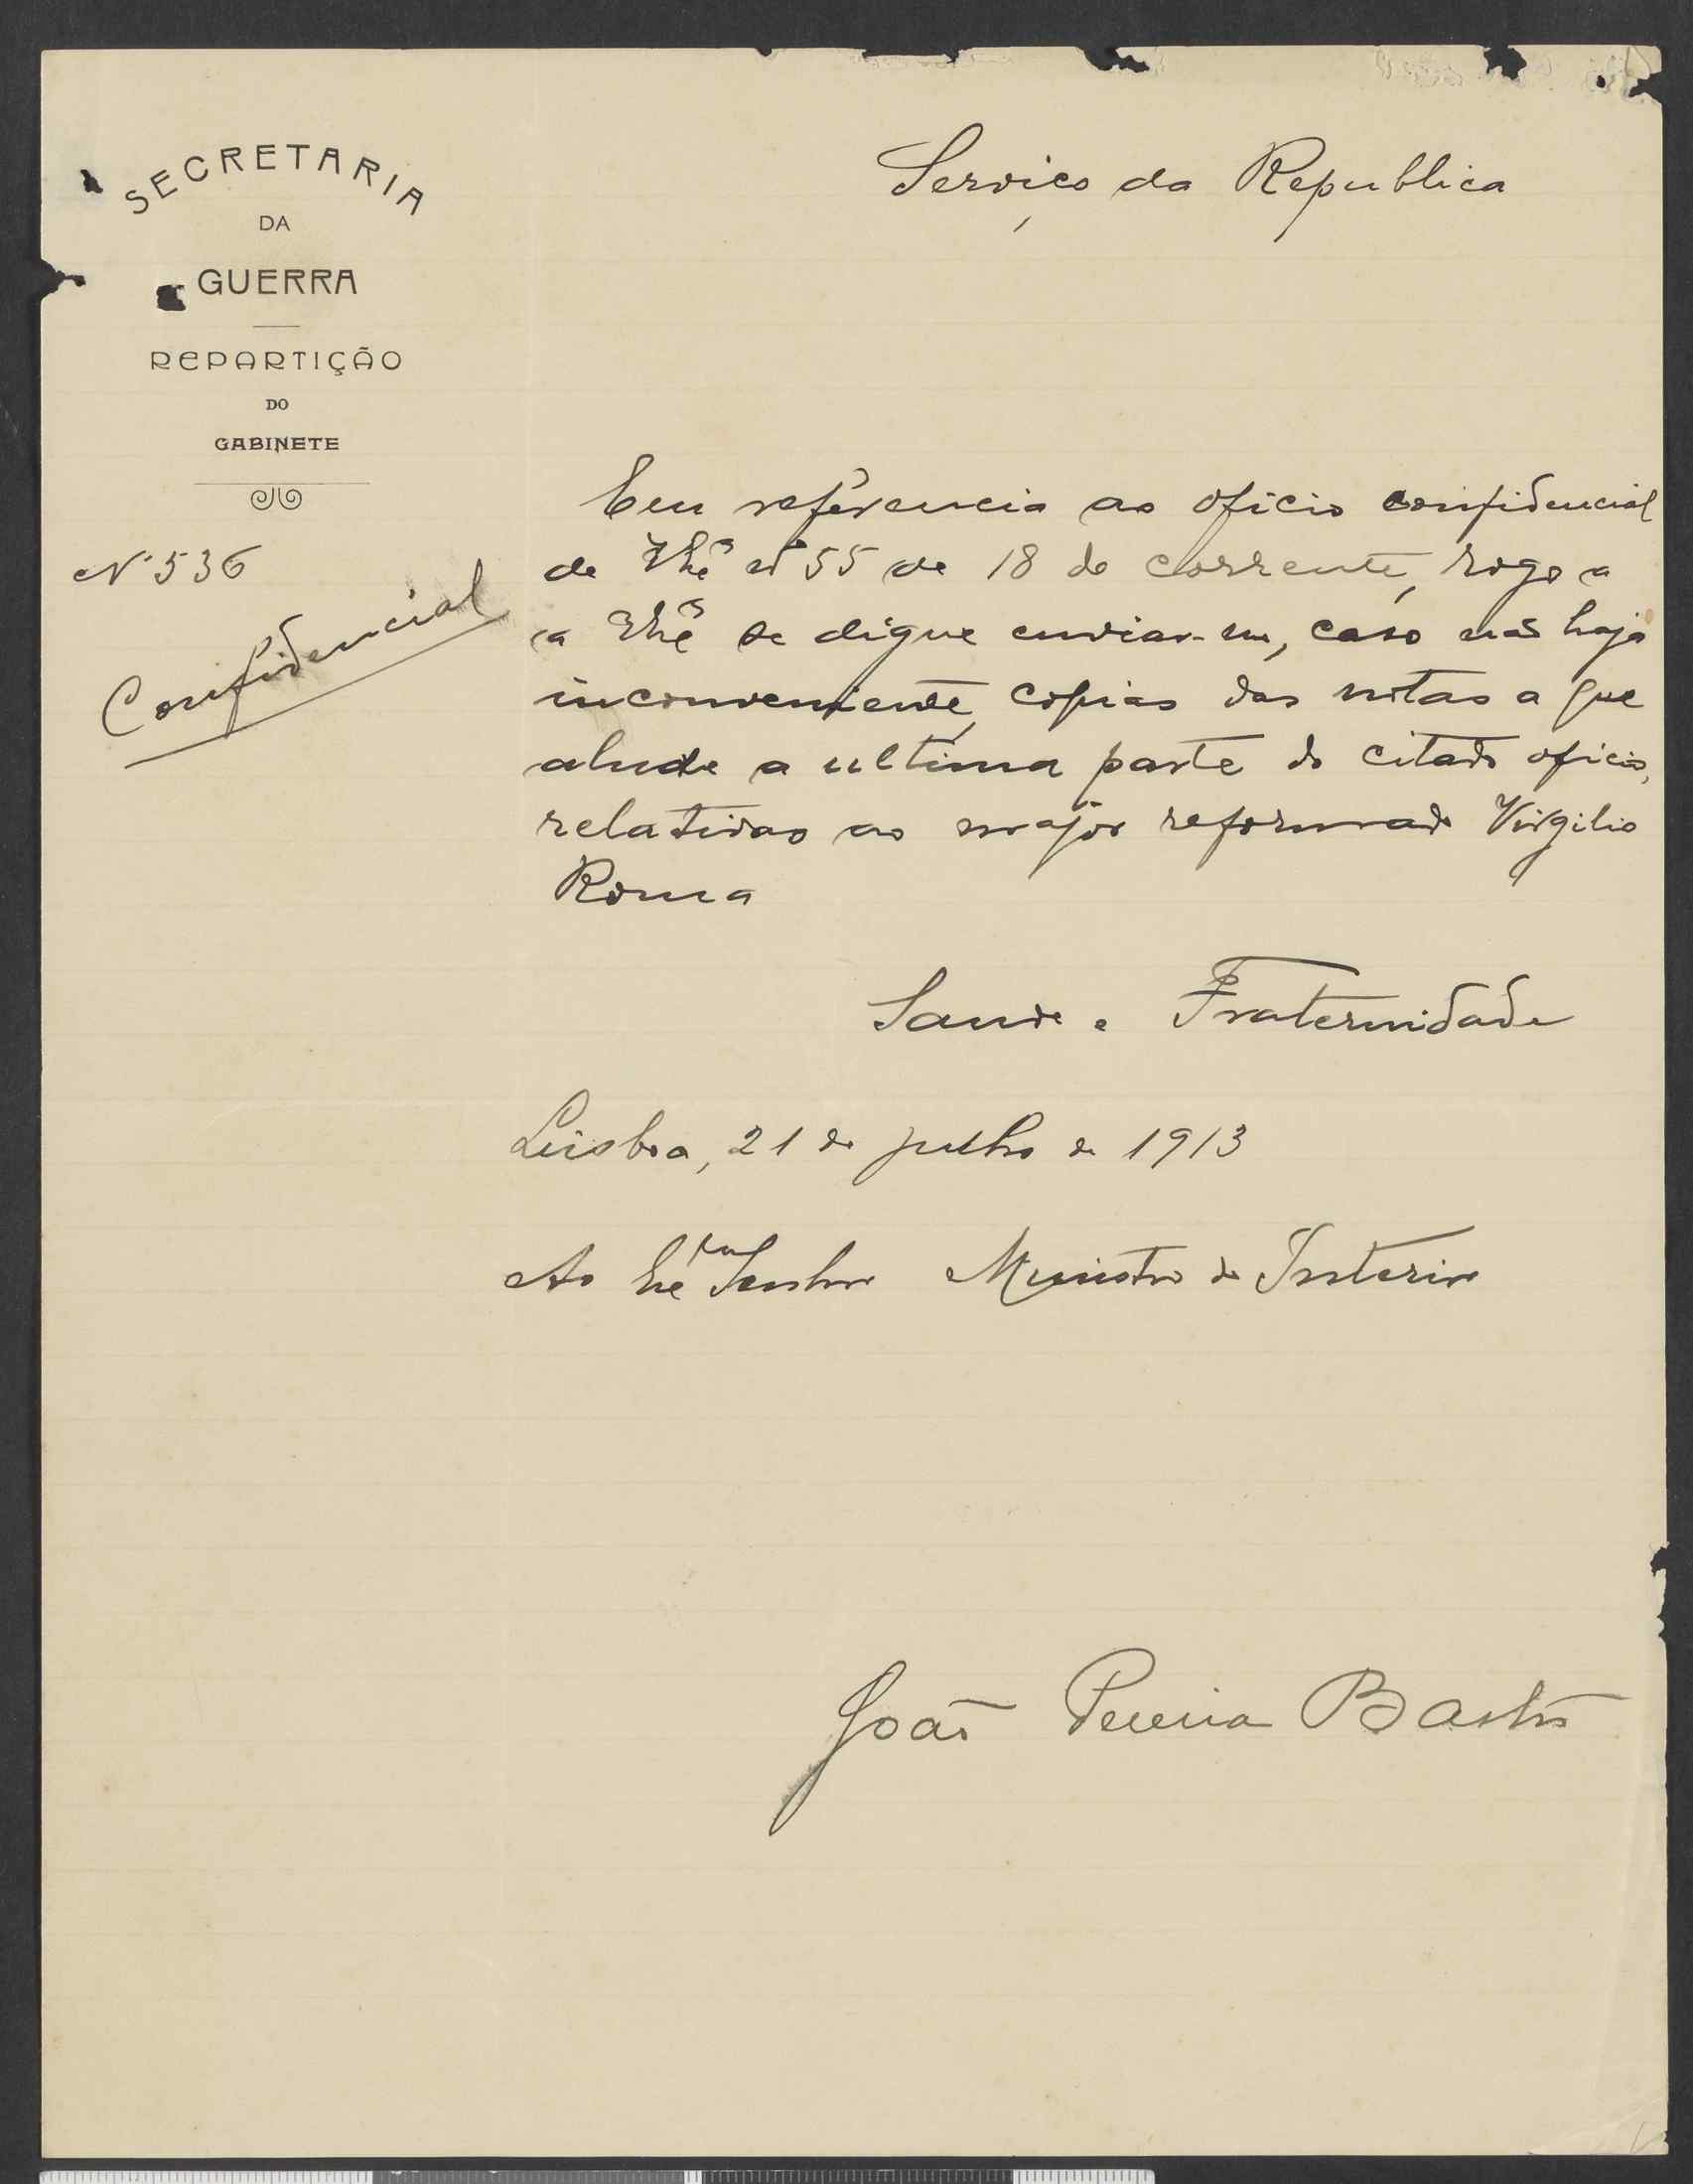 SECRETARIA
DA
GUERRA
REPARTIÇÃO
DO
GABINETE
Nº 536
Confidencial
Serviço da Republica
Em referencia ao oficio confidencial
de V. Exª nº 55 de 18 do corrente, rogo a
a V. Exª se digne enviar-me, caso não haja
inconveniente, copias das notas a que
alude a ultima parte do citado oficio,
relativas ao major reformado Virgilio
Roma
Saude e Fraternidade
Lisboa, 21 de julho de 1913
Ao Exmo Senhor Ministro do Interior
João Pereira Bastos